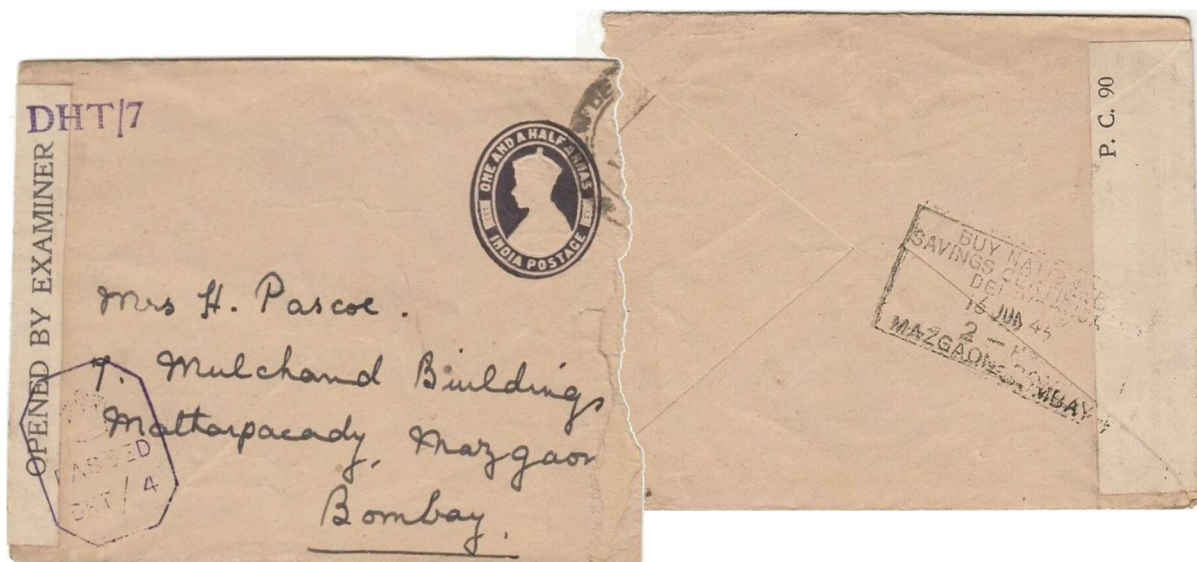 DHT/7
OPENED BY EXAMINER
ONE AND A HALF ANNAS
INDIA POSTAGE
Mrs H. Pascoe.
7. Mulchand Buildings
Mattarpacady, Mazgaon
Bombay.
PASSED
DHT / 4
P. C. 90
BUY NATIONAL
SAVINGS CERTIFICATES
16 JUN 45
2 -
MAZGAON BOMBAY